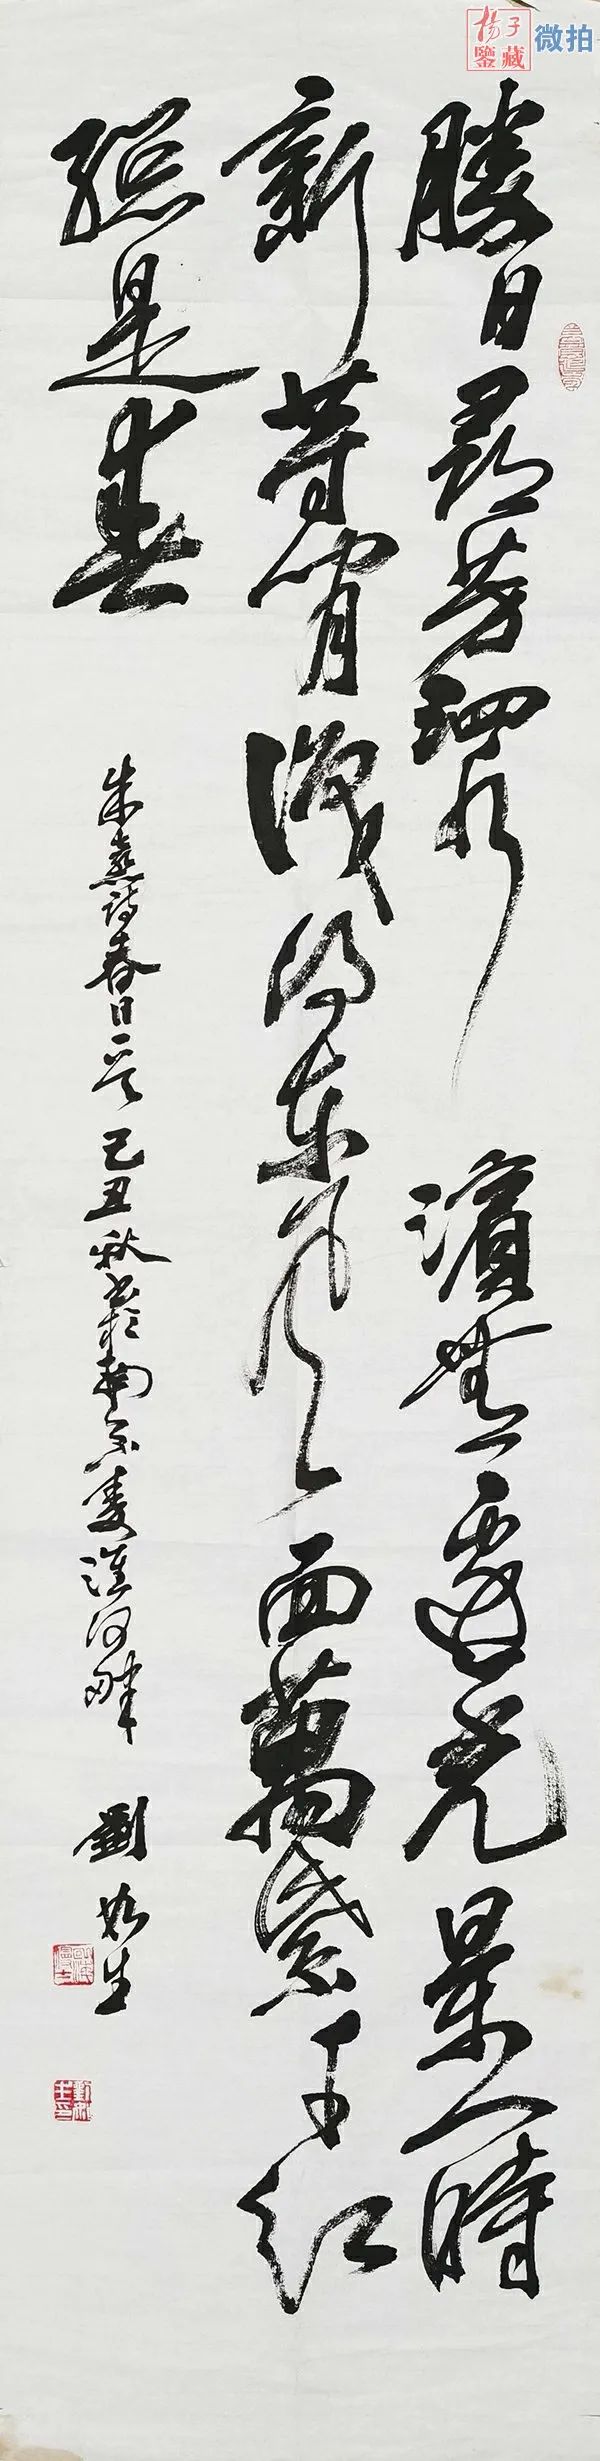 揚子
鑒藏
微拍
勝日尋芳泗水濱無邊光景一時
新等閒識得東風面萬紫千紅
總是春
朱熹詩春日一首 己丑秋書於南京秦淮河畔 劉 生